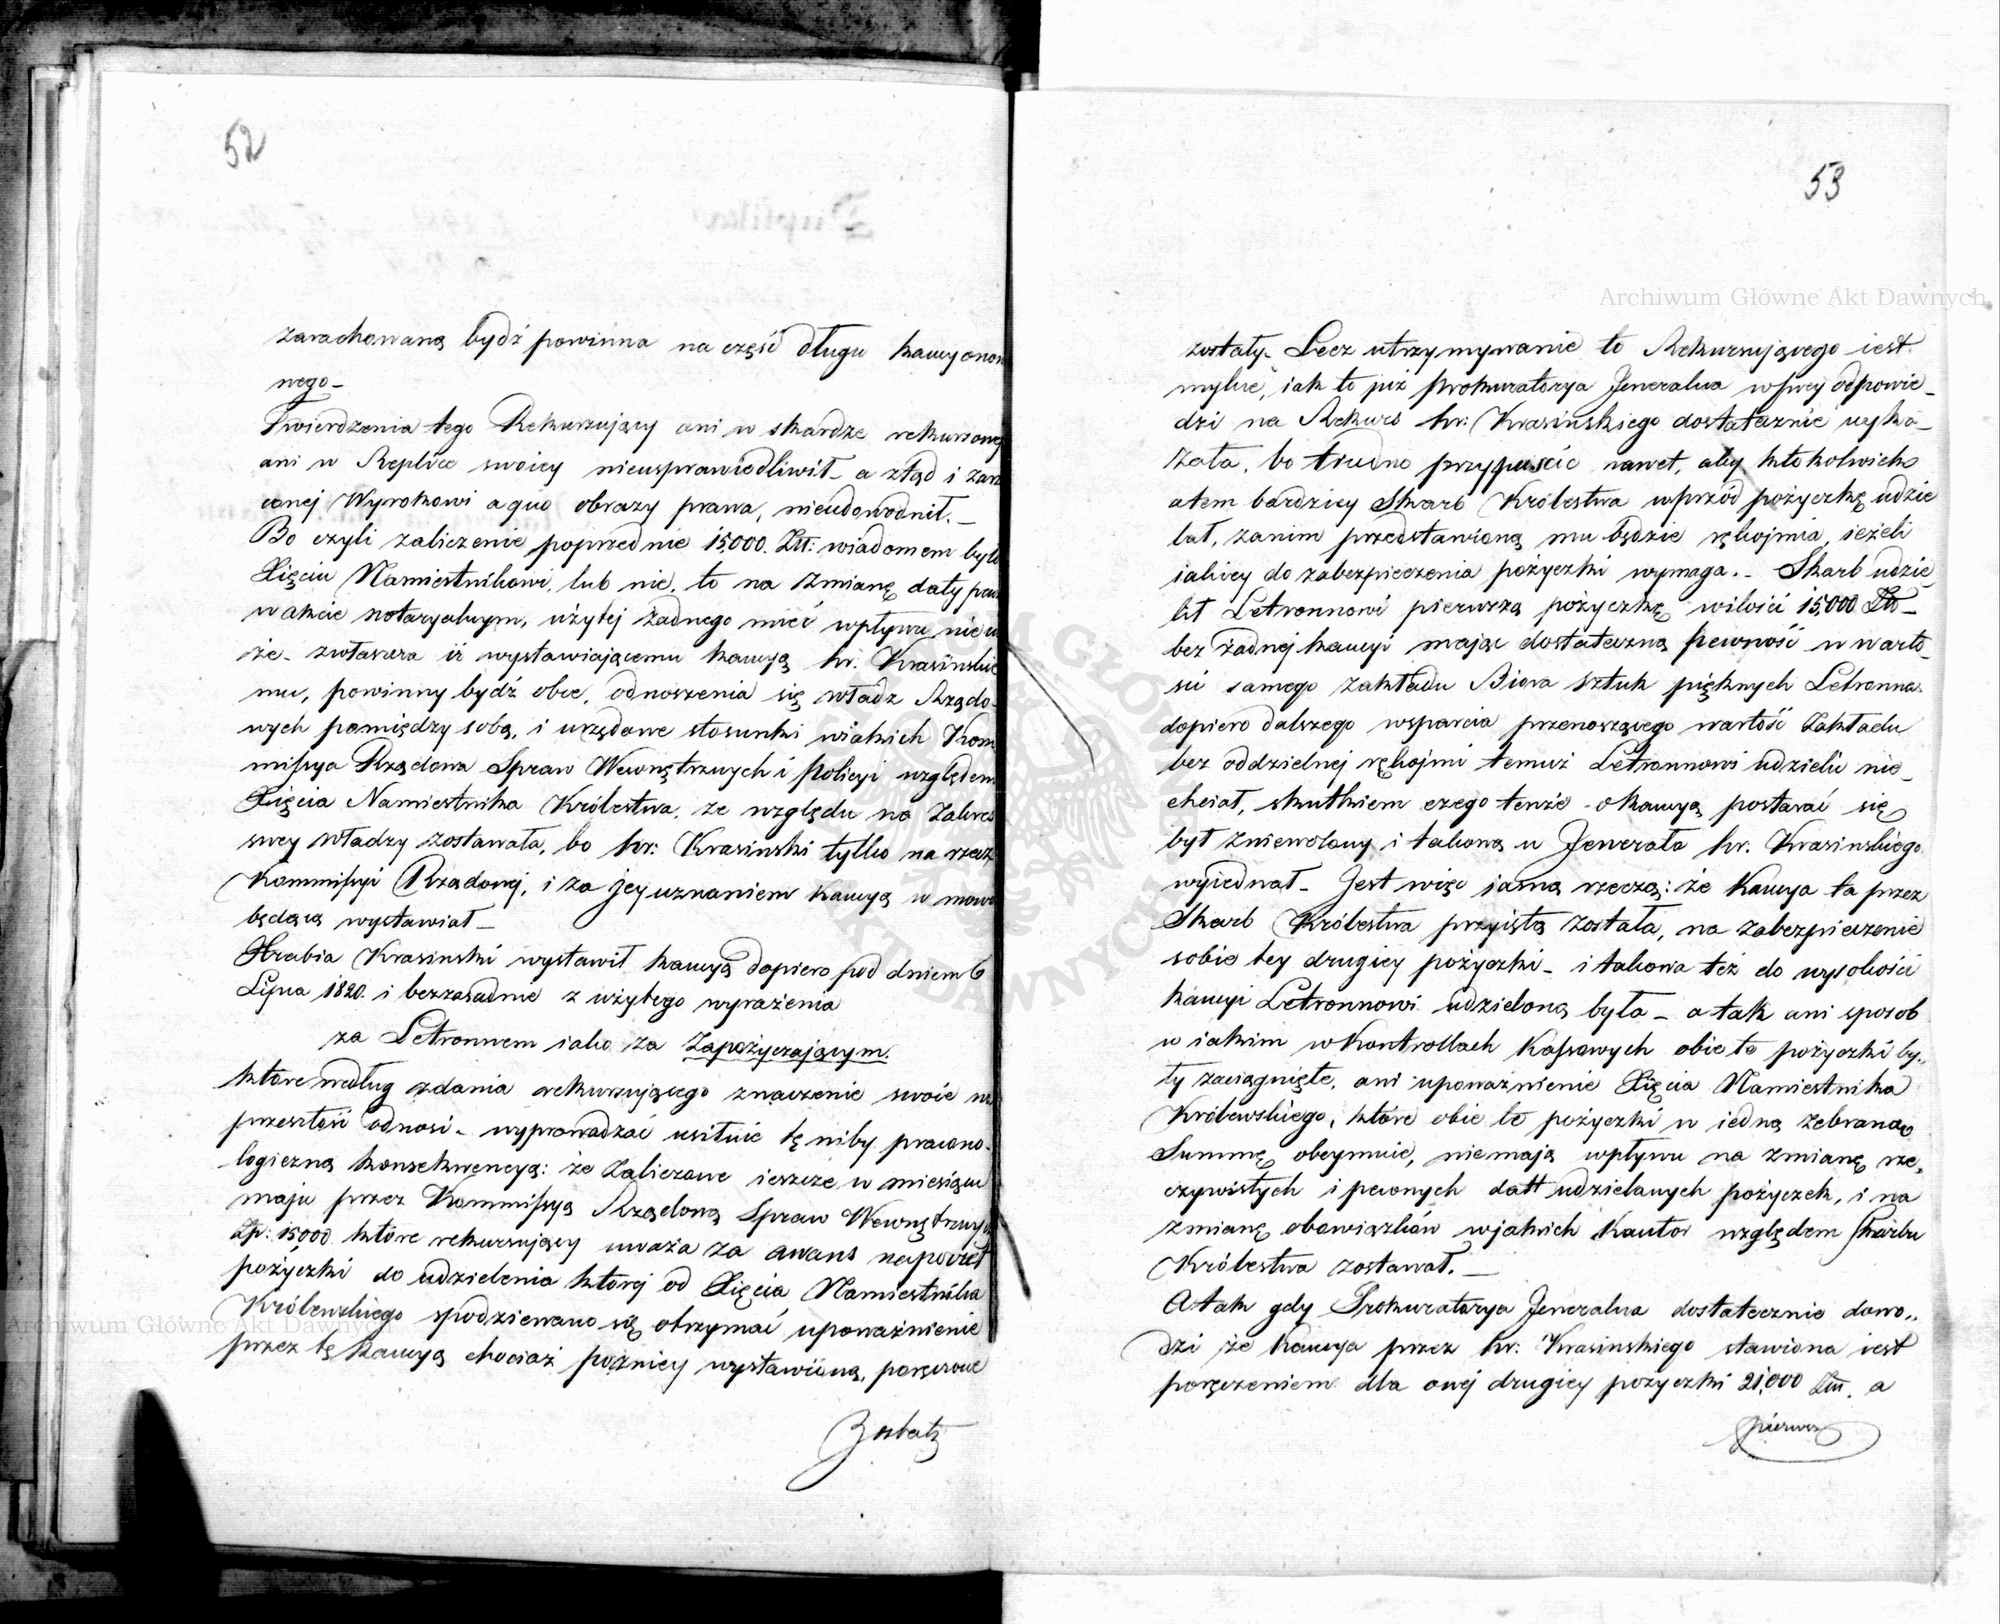 52
zarachowaną bydź powinna na część długu kaucyono
nego_
Twierdzenia tego Rekursujący ani w skardze rekursowey
ani w Replice swoiey nieusprawiedliwił_ a ztąd i zarzu
conej Wyrokowi a quo obrazy prawa, nieudowodnił._
Bo czyli zaliczenie poprzednie 15,000. Złł: wiadomem było
Xięciu Namiestnikowi, lub nie, to na zmianę daty
w akcie notaryalnym, użytej żadnego mieć wpływu nie
że_ zwłaszcza iż wystawiającemu kaucyą hr. Krasińskie
mu, powinny bydź obce, odnoszenia się władz Rządo-
wych pomiędzy sobą, i urzędowe stosunki w iakich Kom
missya Rządowa Spraw Wewnętrznych i Policyi względem
Xięcia Namiestnika Królestwa, ze względu na Zakres
swey władzy zostawała, bo hr: Krasinski tylko na rzecz
Kommissyi Rządowej, i za jey uznaniem kaucyą w mowie
będącą wystawiał_
Hrabia Krasinski wystawił kaucyą dopiero pod dniem 6
Lipca 1820. i bezzasadnie z użytego wyrażenia
za Letronnem iako za Zapożyczającym.
które według zdania rekursującego znaczenie swoie na
przeszłość odnosi_ wyprowadzać usiłuie tę niby prawno-
logiczną konsekwencyą: że Zaliczone ieszcze w miesiącu
maju przez Kommissyą Rządową Spraw Wewnętrznych
Złp: 15,000 które rekursujący uważa za awans na poczet
pożyczki do udzielenia której od Xięcia Namiestnika
Królewskiego spodziewano się otrzymać upoważnienie
przez tę kaucyą chociaż poźniey wystawioną, poręczone
53
zostały. Lecz utrzymywanie to Rekursującego iest
mylne, iak to już Prokuratorya Jeneralna w swey odpowie_
dzi na Rekurs hr: Krasińskiego dostatecznie wyka_
zała, bo trudno przypuścić nawet, aby ktokolwiek
a tem bardziey Skarb Królestwa wprzód pożyczkę udzie
lał, zanim przedstawioną mu będzie rękojmia, ieżeli
iakiey do zabezpieczenia pożyczki wymaga._ Skarb udzie_
lił Letronnowi pierwszą pożyczkę wilości 15,000 Złł_
bez żadnej kaucyi mając dostateczną pewność w warto_
ści samego zakładu Biora sztuk pięknych Letronna.
dopiero dalszego wsparcia przenoszącego wartość Zakładu
bez oddzielnej rękojmi temuż Letronnowi udzielić nie_
chciał, skutkiem czego tenże o kaucyą postarać się
był zniewolony i takową u Jenerała hr. Krasinskiego
wyiednał_ Jest więc iasną rzeczą: że Kaucya ta przez
Skarb Królestwa przyiętą została, na zabezpieczenie
sobie tey drugiey pożyczki_ i takowa też do wysokości
kaucyi Letronnowi udzieloną była_ a tak ani sposob
w iakim w Kontrollach Kassowych obie te pożyczki by_
ły zaciągnięte, ani upoważnienie Xięcia Namiestnika
Królewskiego, które obie te pożyczki w iedną zebrane
Summę obeymuie, nie mają wpływu na zmianę rze_
czywistych i pewnych datt udzielanych pożyczek, i na
zmianę obowiązków w jakich Kautor względem Skarbu
Królestwa zostawał._
A tak gdy Prokuratorya Jeneralna dostatecznie dowo_
dzi że kaucya przez hr: Krasinskiego stawiona iest
poręczeniem dla owéj drugiey pożyczki 21,000 Złł. a
pierwsza